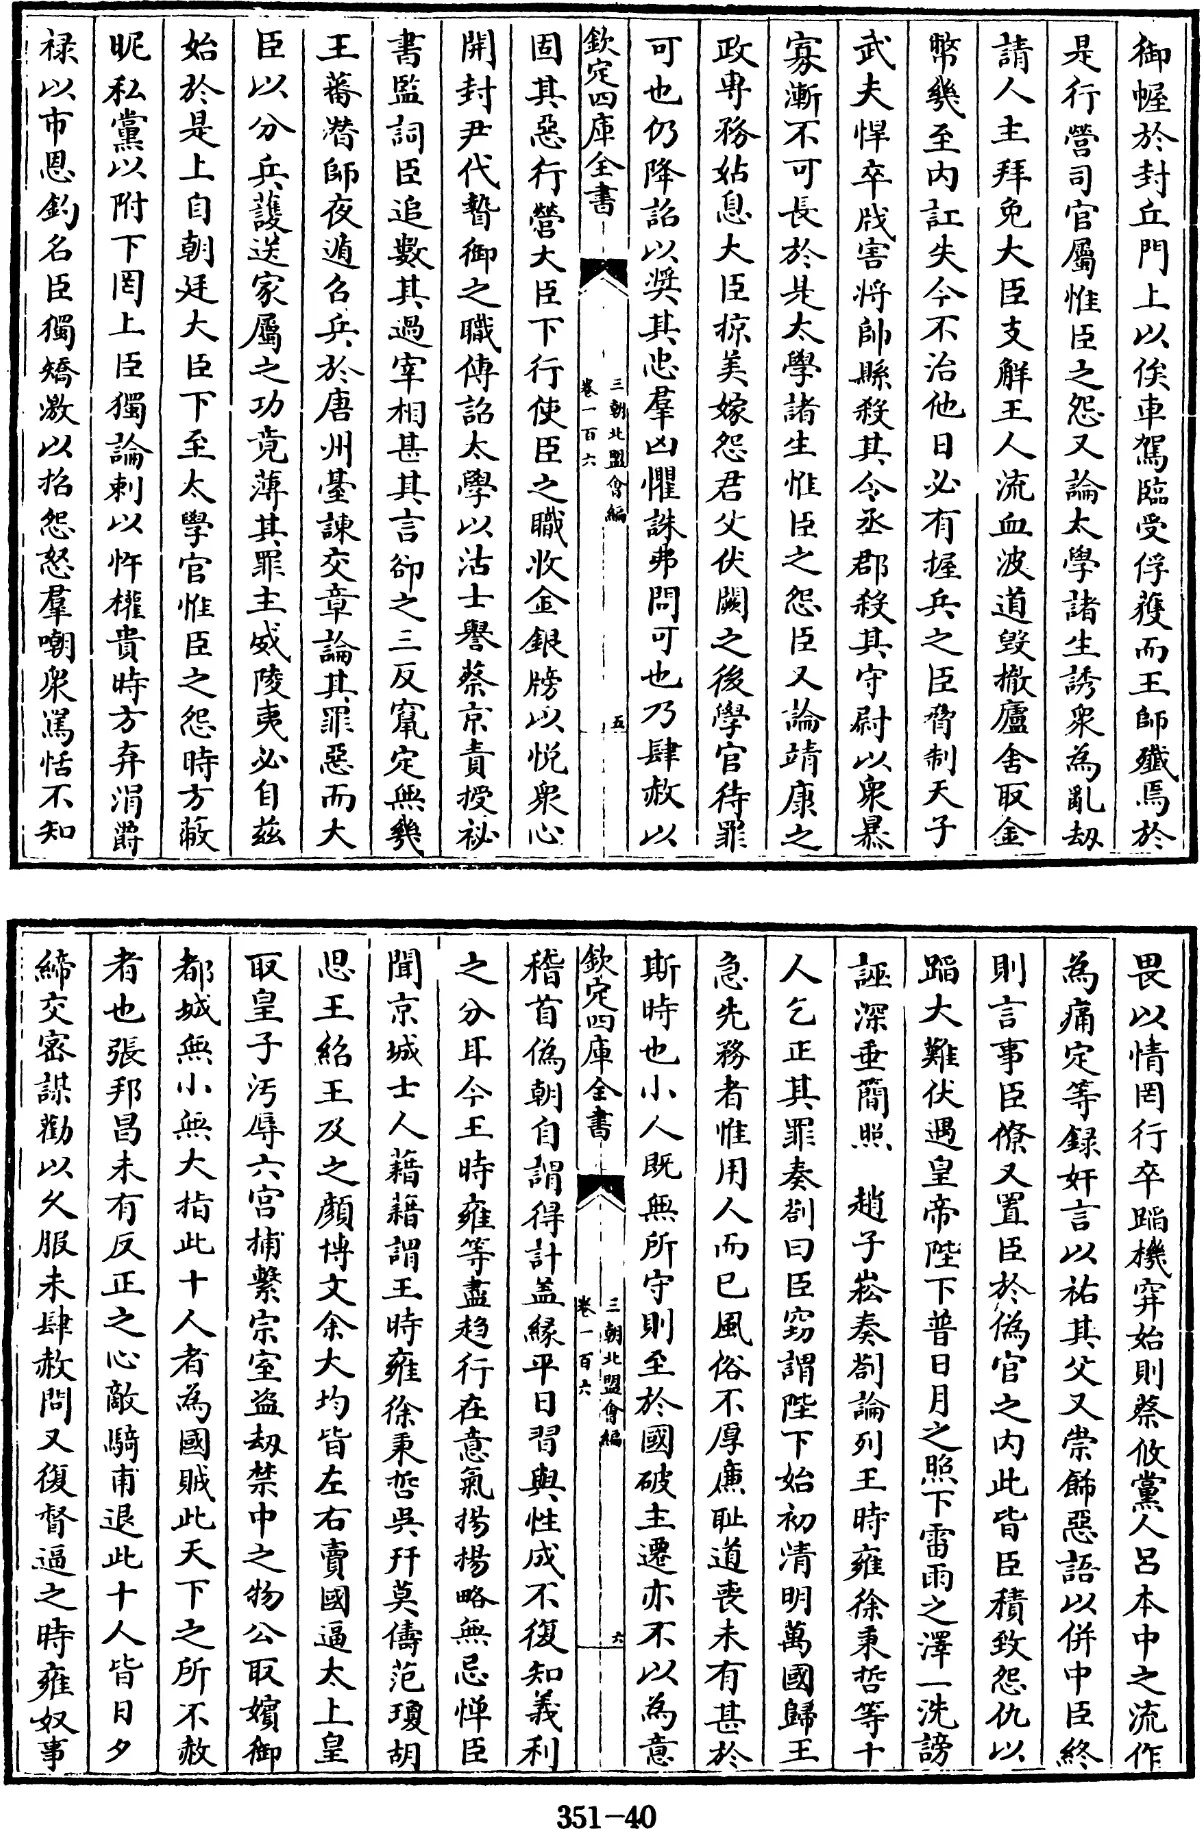 御幄於封丘門上以俟車駕臨受俘䕶而王師殱焉於
是行營司官屬惟臣之怨又論太學諸生誘衆為亂刼
請人主拜免大臣支解王人流血波道毀撤廬舍取金
幣幾至内訌失今不治他日必有握兵之臣脅制天子
武夫悍卒戕害將帥縣殺其令丞郡殺其守尉以衆暴
寡漸不可長於是太學諸生惟臣之怨臣又論靖康之
政専務姑息大臣掠美嫁怨君父伏闕之後學官待罪
可也仍降詔以奬其忠羣凶懼誅弗問可也乃肆赦以
欽定四庫全書
三朝北盟會編
卷一百六
五
固其惡行營大臣下行使臣之職收金銀牓以悦衆心
開封尹代暬御之職傳詔太學以沽士譽蔡京責授祕
書監詞臣追數其過宰相甚其言卻之三反竄定無幾
王蕃潜師夜遁召兵於唐州臺諫交章論其罪惡而大
臣以分兵護送家屬之功竟薄其罪主威陵夷必自兹
始於是上自朝廷大臣下至太學官惟臣之怨時方蔽
昵私黨以附下罔上臣獨論刺以忤權貴時方弃涓爵
禄以市恩釣名臣獨矯激以招怨怒羣嘲衆罵恬不知
畏以情罔行卒蹈機穽始則蔡攸黨人呂本中之流作
為痛定等録奸言以祐其父又崇飾惡語以併中臣終
則言事臣僚又置臣於偽官之内此皆臣積致怨仇以
蹈大難伏遇皇帝陛下普日月之照下雷雨之澤一洗謗
誣深垂簡照　趙子崧奏劄論列王時雍徐秉哲等十
人乞正其罪奏劄曰臣竊謂陛下始初清明萬國歸王
急先務者惟用人而已風俗不厚亷耻道喪未有甚於
斯時也小人既無所守則至於國破主遷亦不以為意
欽定四庫全書
三朝北盟會編
卷一百六
六
稽首偽朝自謂得計蓋縁平日習與性成不復知義利
之分耳今王時雍等盡趋行在意氣揚揚略無忌惮臣
聞京城士人藉藉謂王時雍徐秉哲吳幵莫儔范瓊胡
思王紹王及之顔博文余大均皆左右賣國逼太上皇
取皇子汚辱六宫捕繫宗室盗刼禁中之物公取嬪御
都城無小無大指此十人者為國賊此天下之所不赦
者也張邦昌未有反正之心敵騎甫退此十人皆日夕
締交密謀勸以久服未肆赦問又復督逼之時雍奴事
351-40